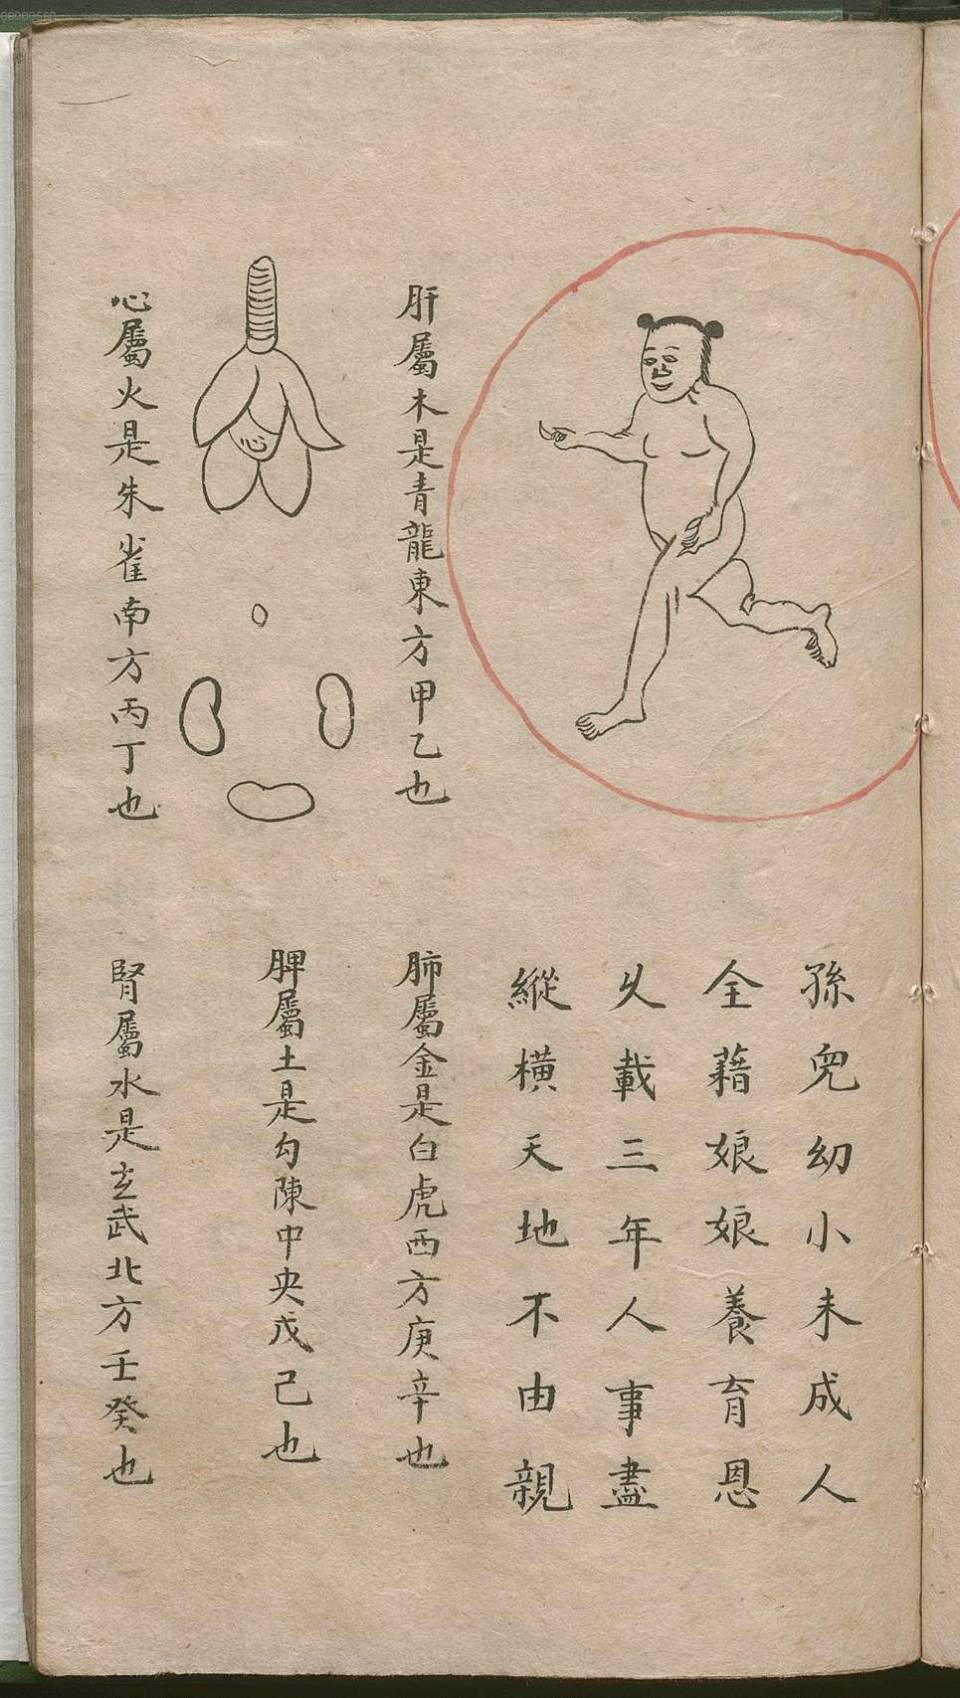 孫兒幼小未成人
全藉娘娘養育恩
乆載三年人事盡
縱橫天地不由親
肝屬木是青龍東方甲乙也
肺屬金是白虎西方庚辛也
心
脾屬土是勾陳中央戊己也
心屬火是朱雀南方丙丁也
腎屬水是玄武北方壬癸也